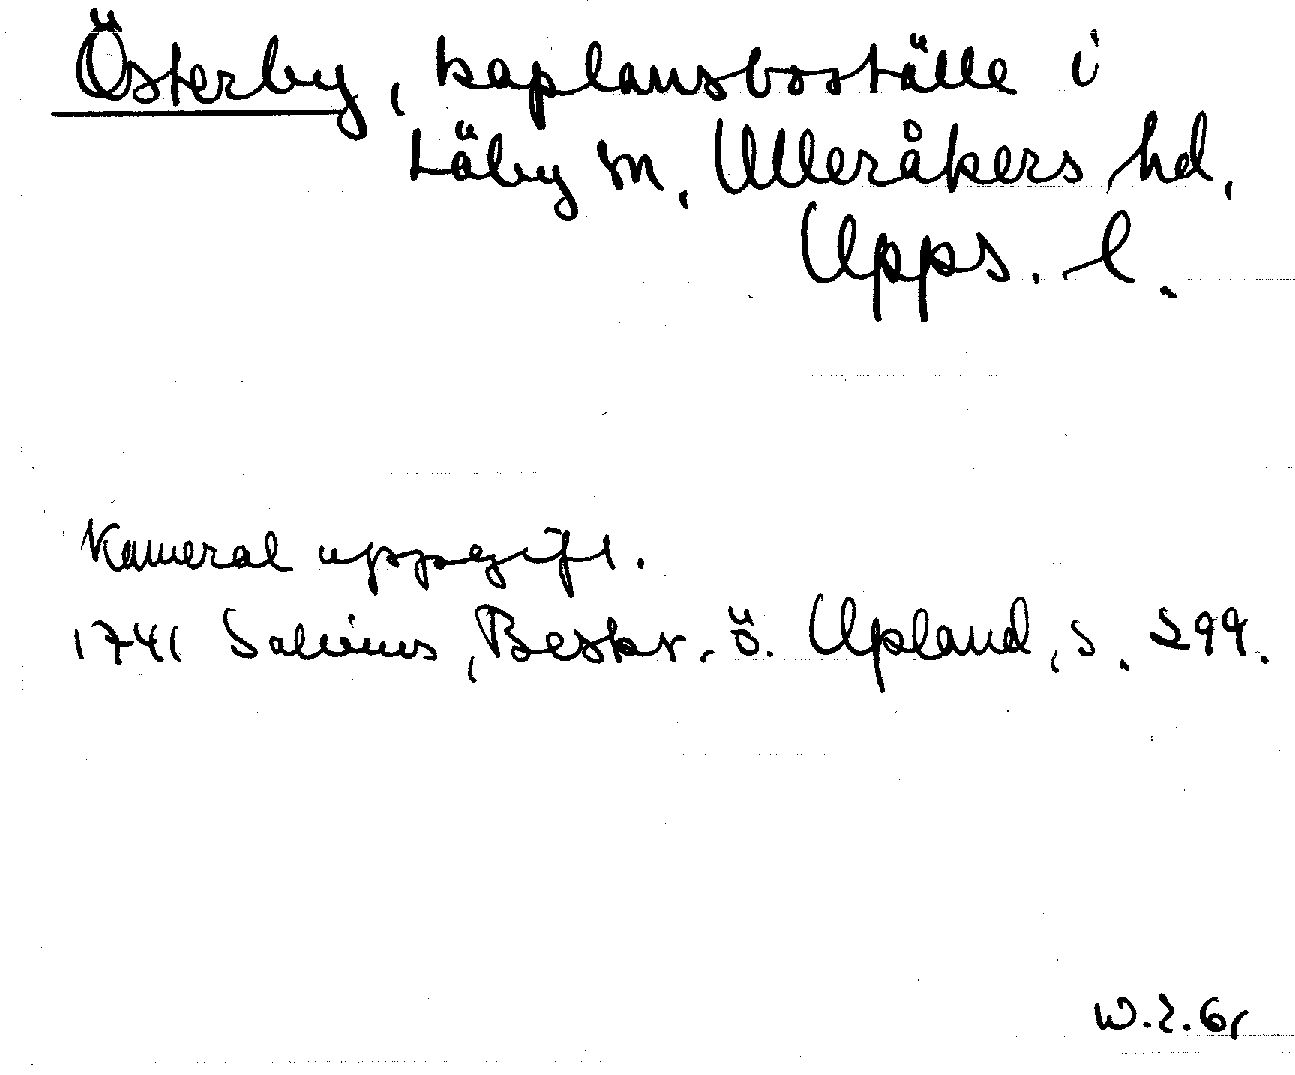 Österby, kaplansboställe i
Läby sn, Ulleråkers hd,
Upps. l.
Kameral uppgift.
1741 Salvius, Beskr. ö. Upland, s. 299.